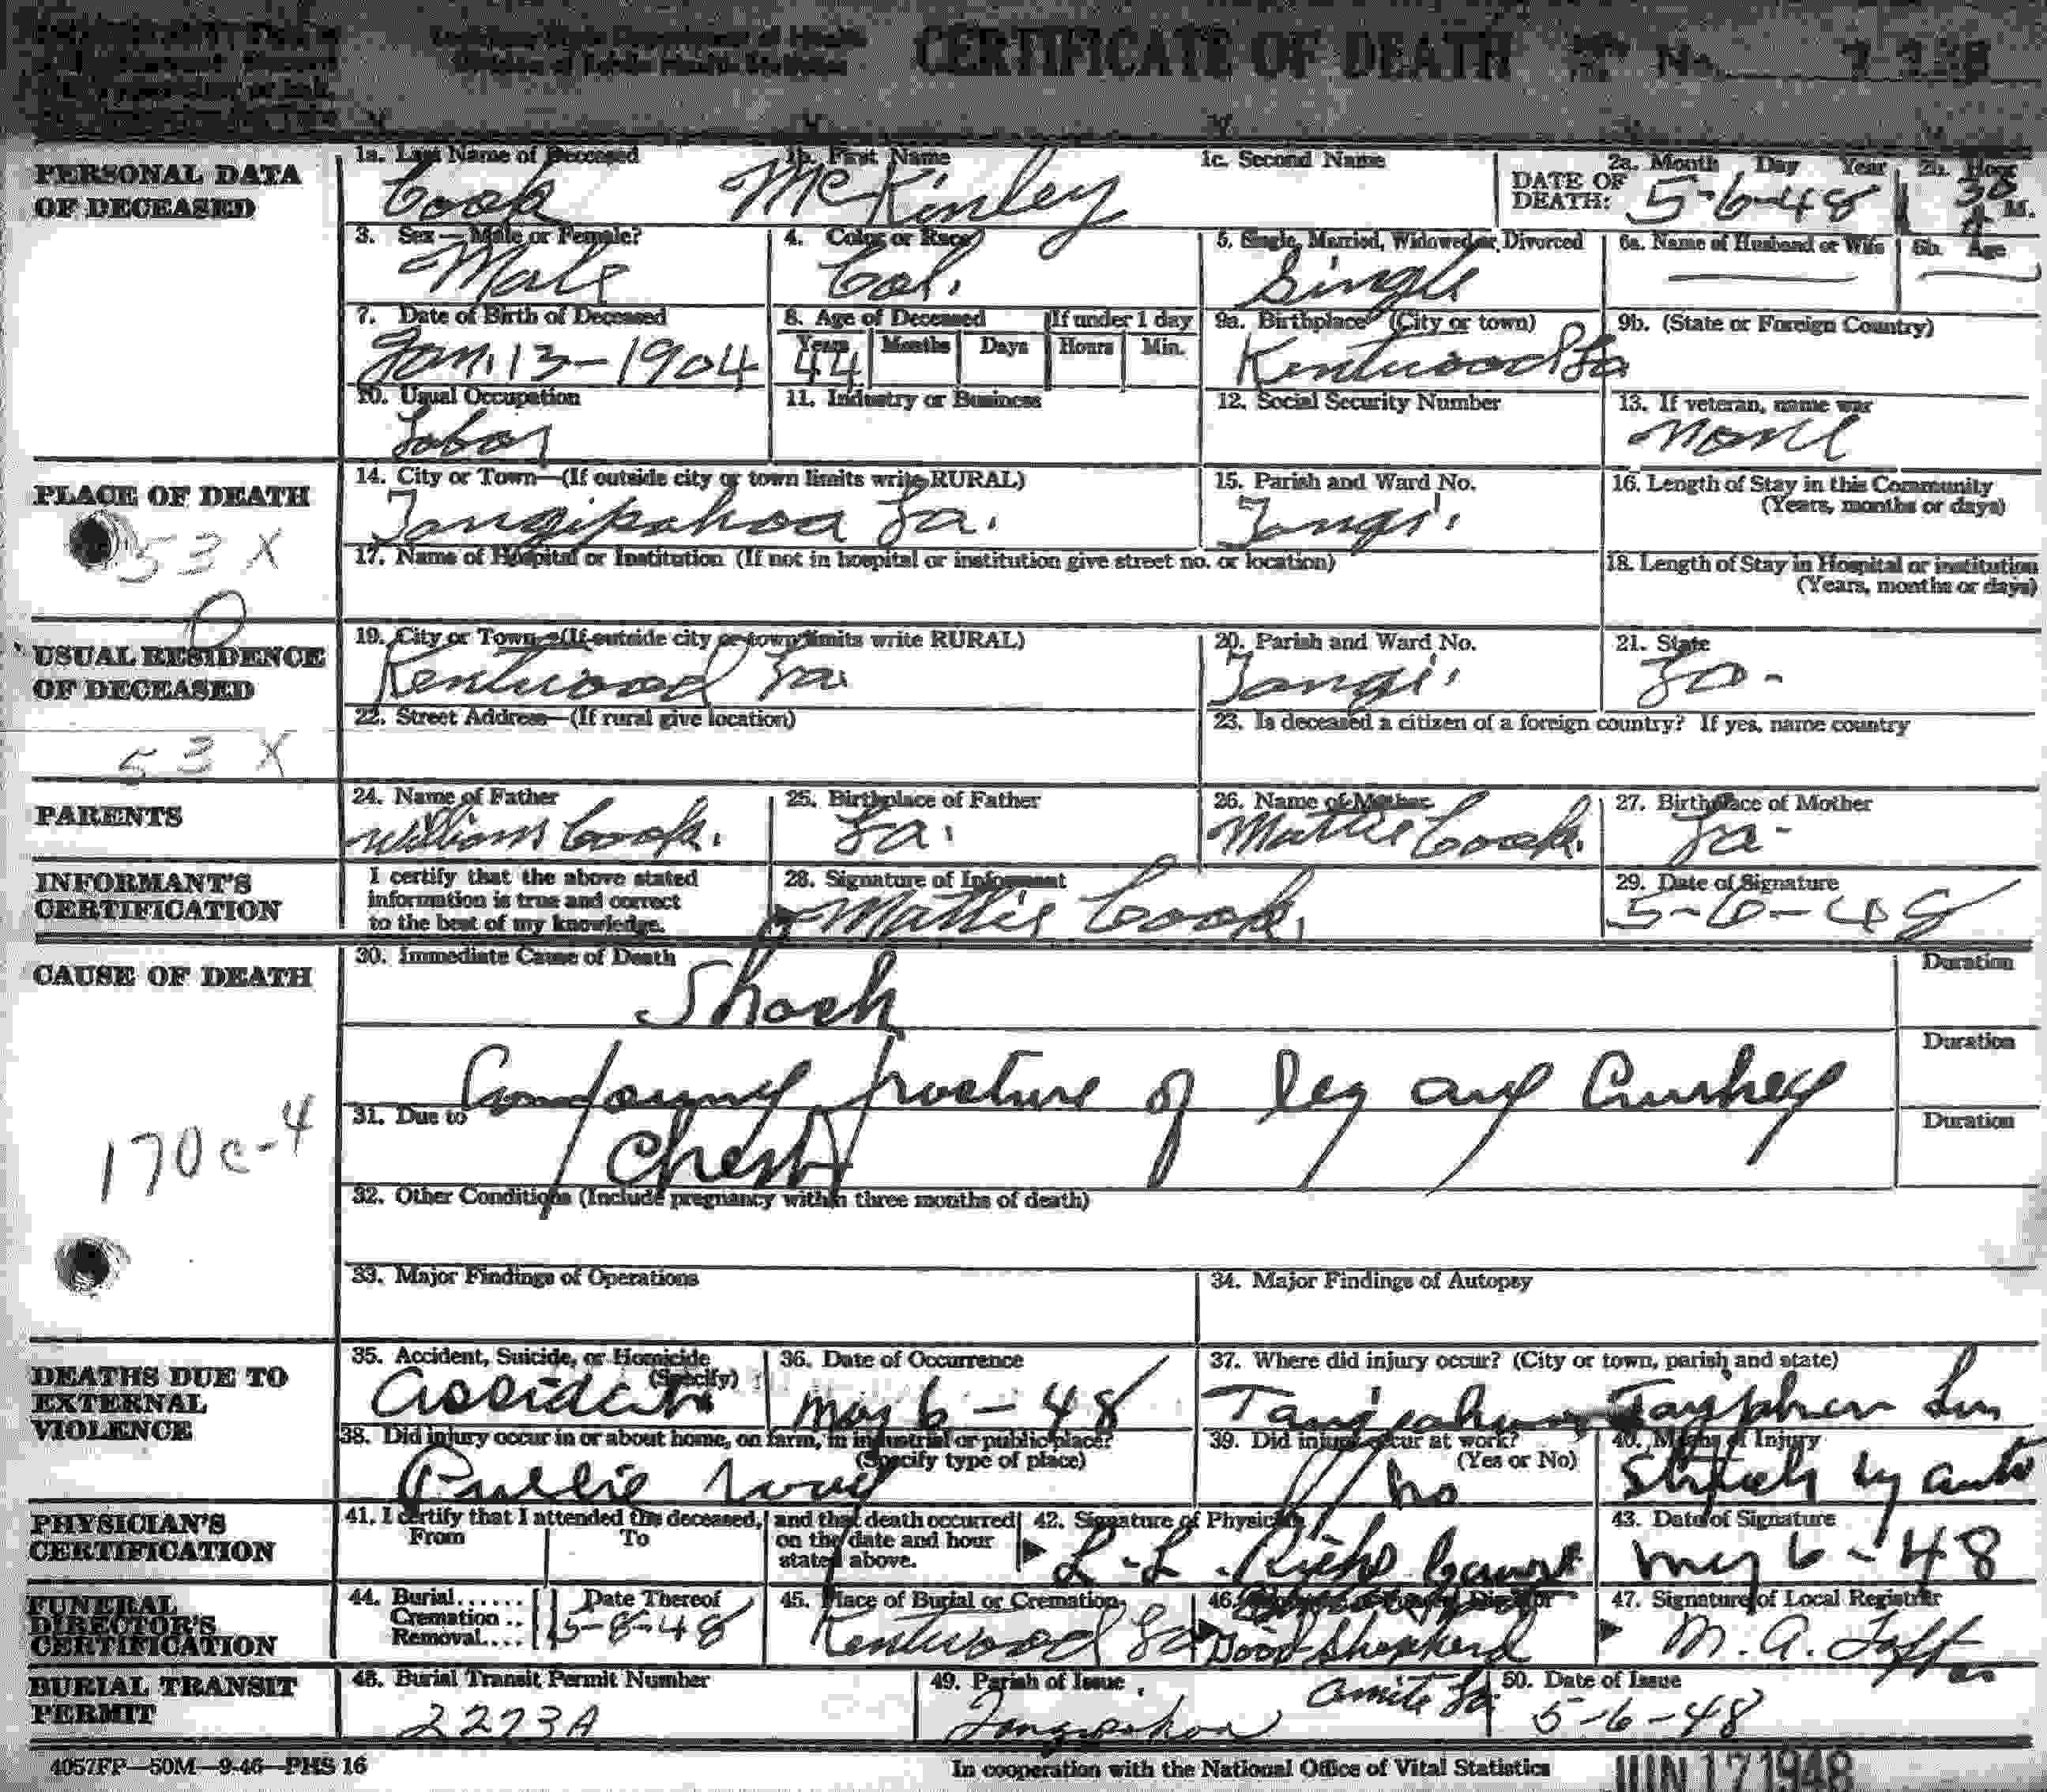 CERTIFICATE OF DEATH
PERSONAL DATA OF DECEASED
1a. Last Name of Deceased 1b. First Name 1c. Second Name
DATE OF DEATH: 2a. Month Day Year 2b. Hour
Cook McKinley 5-6-48 30 A M.
3. Sex—Male or Female? 4. Color or Race 5. Single, Married, Widowed or Divorced 6a. Name of Husband or Wife 6b. Age
Male Col. Single
7. Date of Birth of Deceased 8. Age of Deceased If under 1 day 9a. Birthplace (City or town) 9b. (State or Foreign Country)
Years Months Days Hours Min.
Jan. 13-1904 44 Kentwood La
10. Usual Occupation 11. Industry or Business 12. Social Security Number 13. If veteran, name war
Labor None
PLACE OF DEATH
14. City or Town—(If outside city or town limits write RURAL) 15. Parish and Ward No. 16. Length of Stay in this Community (Years, months or days)
Tangipahoa La. Tangi.
53 X
17. Name of Hospital or Institution (If not in hospital or institution give street no. or location) 18. Length of Stay in Hospital or institution (Years, months or days)
USUAL RESIDENCE OF DECEASED
19. City or Town—(If outside city or town limits write RURAL) 20. Parish and Ward No. 21. State
Kentwood La. Tangi. La-
22. Street Address—(If rural give location) 23. Is deceased a citizen of a foreign country? If yes, name country
53 X
PARENTS
24. Name of Father 25. Birthplace of Father 26. Name of Mother 27. Birthplace of Mother
William Cook. La. Mattie Cook. La-
INFORMANT'S CERTIFICATION
I certify that the above stated information is true and correct to the best of my knowledge.
28. Signature of Informant 29. Date of Signature
Mattie Cook. 5-6-48
CAUSE OF DEATH
30. Immediate Cause of Death Duration
Shock
Duration
Compound fracture of leg and Crushed
31. Due to Duration
Chest
170c-4
32. Other Conditions (Include pregnancy within three months of death)
33. Major Findings of Operations 34. Major Findings of Autopsy
DEATHS DUE TO EXTERNAL VIOLENCE
35. Accident, Suicide, or Homicide (Specify) 36. Date of Occurrence 37. Where did injury occur? (City or town, parish and state)
Assident May 6-48
38. Did injury occur in or about home, on farm, in industrial or public place? (Specify type of place) 39. Did injury occur at work? (Yes or No) 40. Means of Injury
Public road no Struck by auto
PHYSICIAN'S CERTIFICATION
41. I certify that I attended the deceased, and that death occurred on the date and hour stated above.
From To
42. Signature of Physician 43. Date of Signature
L-L. May 6-48
FUNERAL DIRECTOR'S CERTIFICATION
44. Burial...... Cremation.. Removal.... Date Thereof 45. Place of Burial or Cremation 46. 47. Signature of Local Registrar
5-8-48 Kentwood La Good Shepherd M. A.
BURIAL TRANSIT PERMIT
48. Burial Transit Permit Number 49. Parish of Issue 50. Date of Issue
Amite La.
2273A Tangipahoa 5-6-48
4057FP—50M—9-46—PHS 16 In cooperation with the National Office of Vital Statistics JUN 17 1948